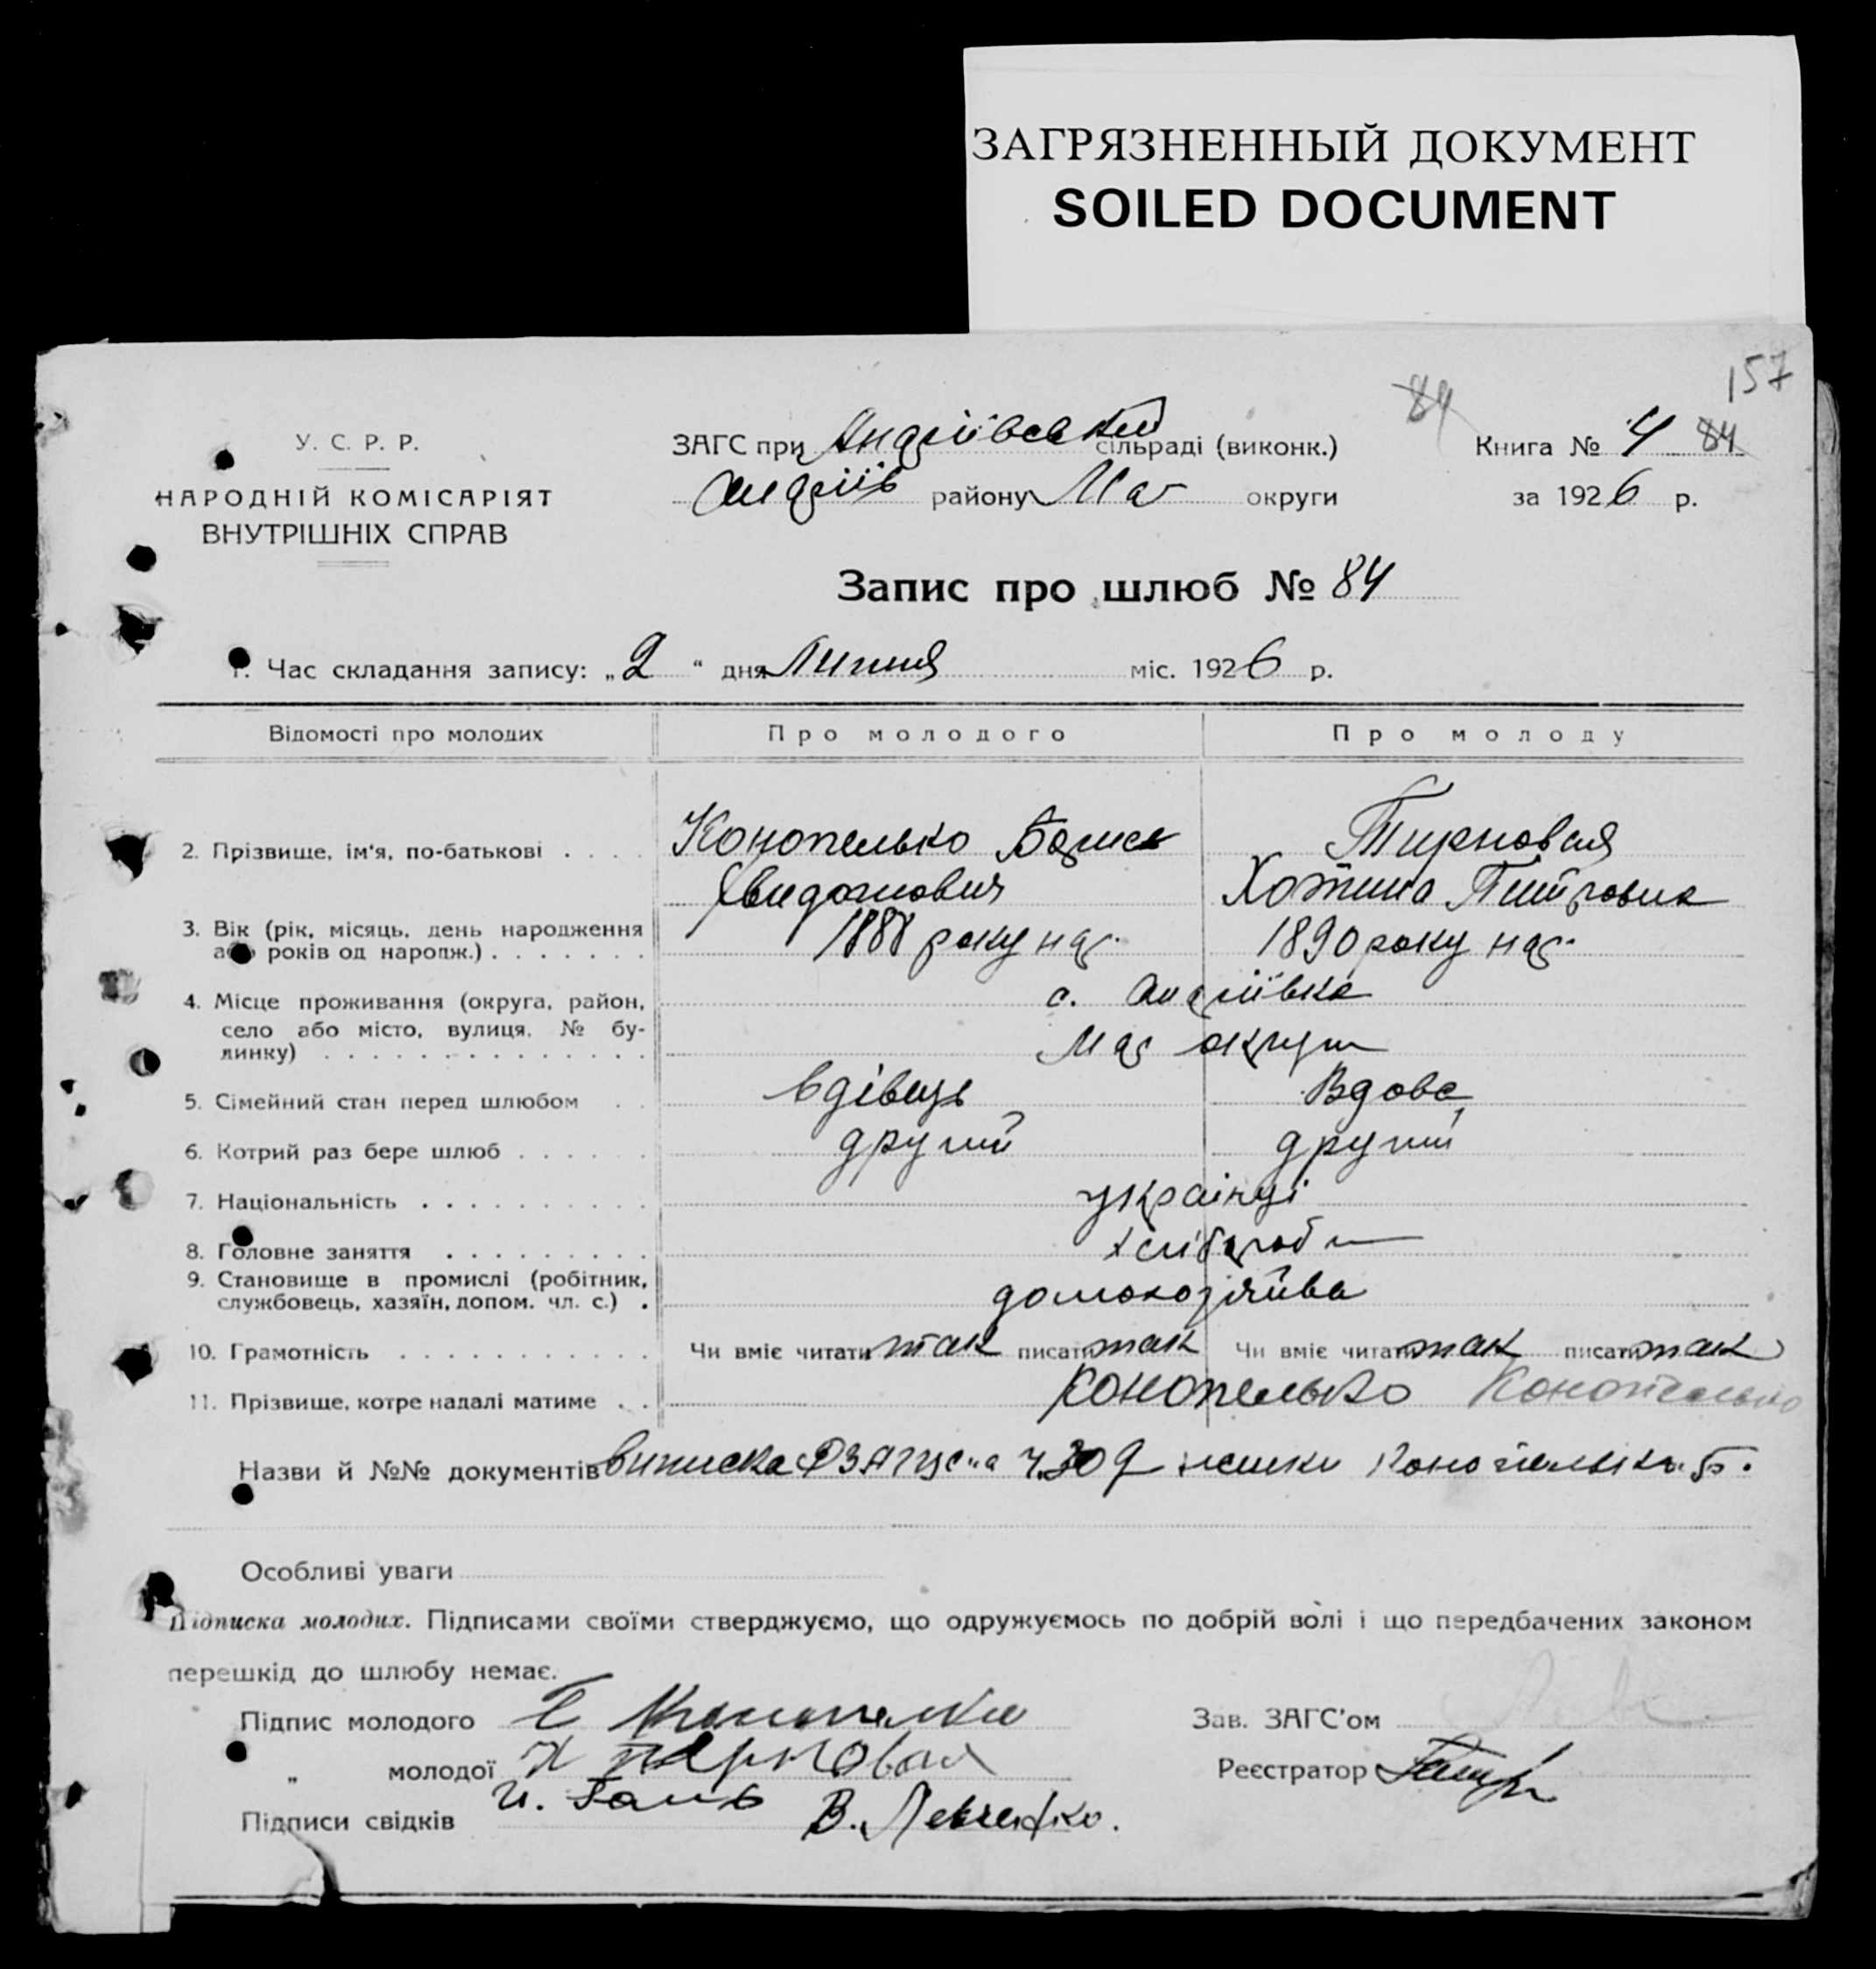 ЗАГРЯЗНЕННЫЙ ДОКУМЕНТ
SOILED DOCUMENT
157
84
У. С. Р. Р.
НАРОДНІЙ КОМІСАРІЯТ
ВНУТРІШНІХ СПРАВ
ЗАГС при Андріївській сільраді (виконк.)
Андріїв району Мар округи
Книга № 4 84
за 1926 р.
Запис про шлюб № 84
1. Час складання запису: „2“ дня Липня міс. 1926 р.
Відомості про молодих Про молодого Про молоду
2. Прізвище, ім'я, по-батькові . . . . Конопелько Борис Тирновая
Хотина Питровна
3. Вік (рік, місяць, день народження 1888 року нар. 1890 року нар.
або років од народж.) . . . . . . .
4. Місце проживання (округа, район, с. Андріївка
село або місто, вулиця, № бу-
динку) . . . . . . . . . . . . . . Мар округи
5. Сімейний стан перед шлюбом . . вдівець Вдова
6. Котрий раз бере шлюб . . . . . . другий другий
7. Національність . . . . . . . . . . українці
8. Головне заняття . . . . . . . . . хлібороби
9. Становище в промислі (робітник,
службовець, хазяїн, допом. чл. с.) . домохозяйва
10. Грамотність . . . . . . . . . . . Чи вміє читати так писати так Чи вміє читати так писати так
11. Прізвище, котре надалі матиме . . Конопелько Конопелько
Назви й №№ документів виписка
Особливі уваги
Підписка молодих. Підписами своїми стверджуємо, що одружуємось по добрій волі і що передбачених законом
перешкід до шлюбу немає.
Підпис молодого Б Конопелко Зав. ЗАГС'ом
„ молодої Х Тернован Реєстратор
Підписи свідків В. Левченко.